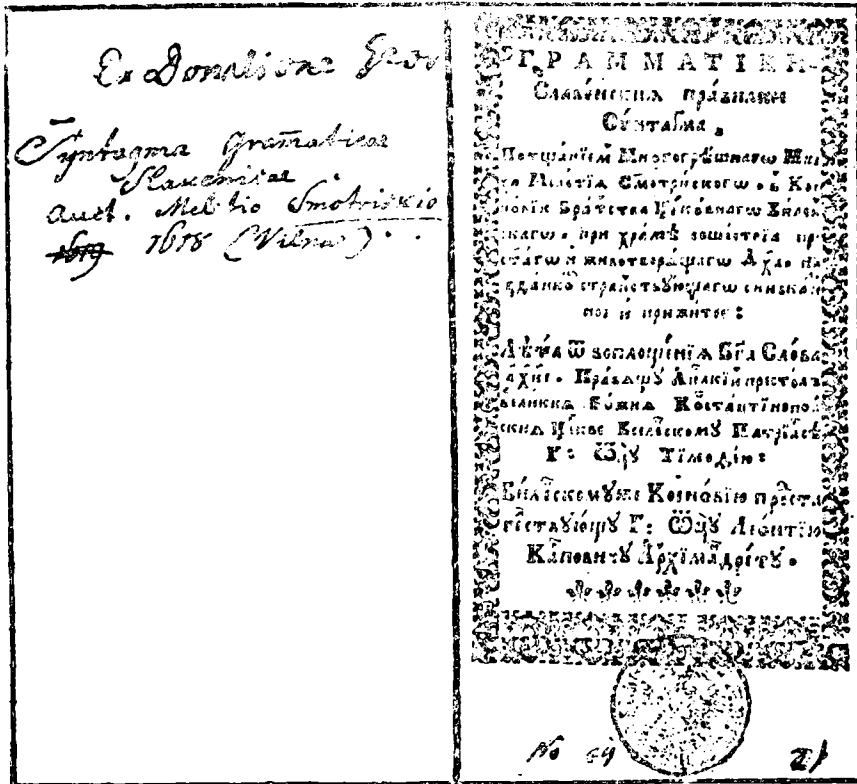 Ex Donatione
Syntagma Gram̃aticae
Slavenicae
auct. Meletio Smotriskio
1619 1618 (Vilnae)
ГРАММАТІКИ
Славе́нскиѧ пра́вилное
Сѵ́нтаґма.
Потща́нїем Многогрѣ́шнагѡ Мни́-
ха Меле́тїѧ Смотри́скогѡ. в̾ Кои-
но́вїи Бра́тства Цр҃ко́внагѡ Виле́н-
скагѡ. при хра́мѣ соше́ствїѧ пр
ст҃а́гѡ и животворѧ́щагѡ Дх҃а на
зда́нном̾ стра́нствꙋющагѡ сниска́н-
ное и прижи́тое:
Лѣ́та ѿ воплоще́нїѧ Бг҃а Сло́ва
а҂хиі. Пра́вѧщꙋ Апл҃скїи престо́л
вели́киѧ Бо́жїѧ Ко́стантїнопол-
скиѧ Цр҃кве Виле́скомꙋ Патрїа́рсѣ
Г: Ѿцꙋ̀ Тїмоѳе́ю:
Виле́скомꙋже Коино́вїю предста́-
те́ствꙋющꙋ Г: Ѿцꙋ̀ Лео́нтїю
Ка́рповичꙋ Архїмаⷩдрі́тꙋ.
No 69 21